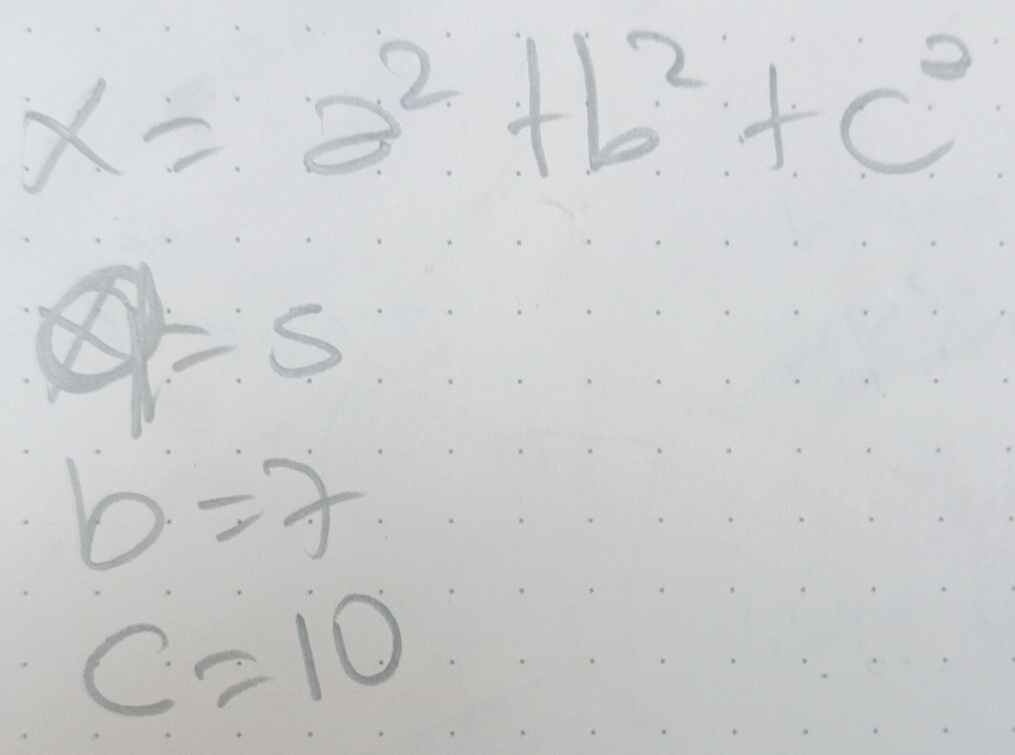 x = a² + b² + c²
a = 5
b = 7
c = 10